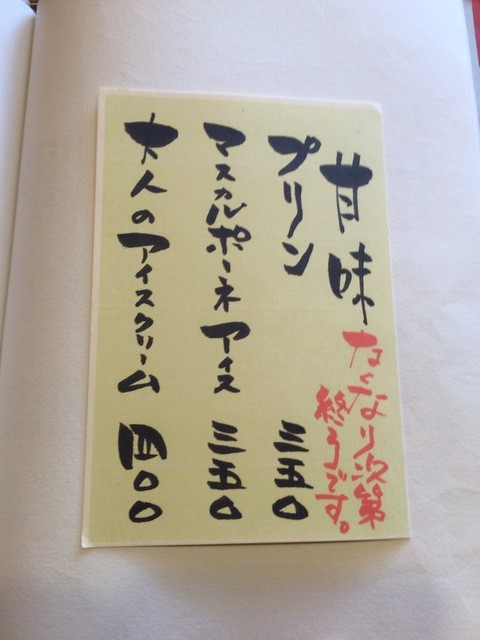 甘味
なくなり次第
終了です。
プリン 三五〇
マスカルポーネアイス 三五〇
大人のアイスクリーム 四〇〇